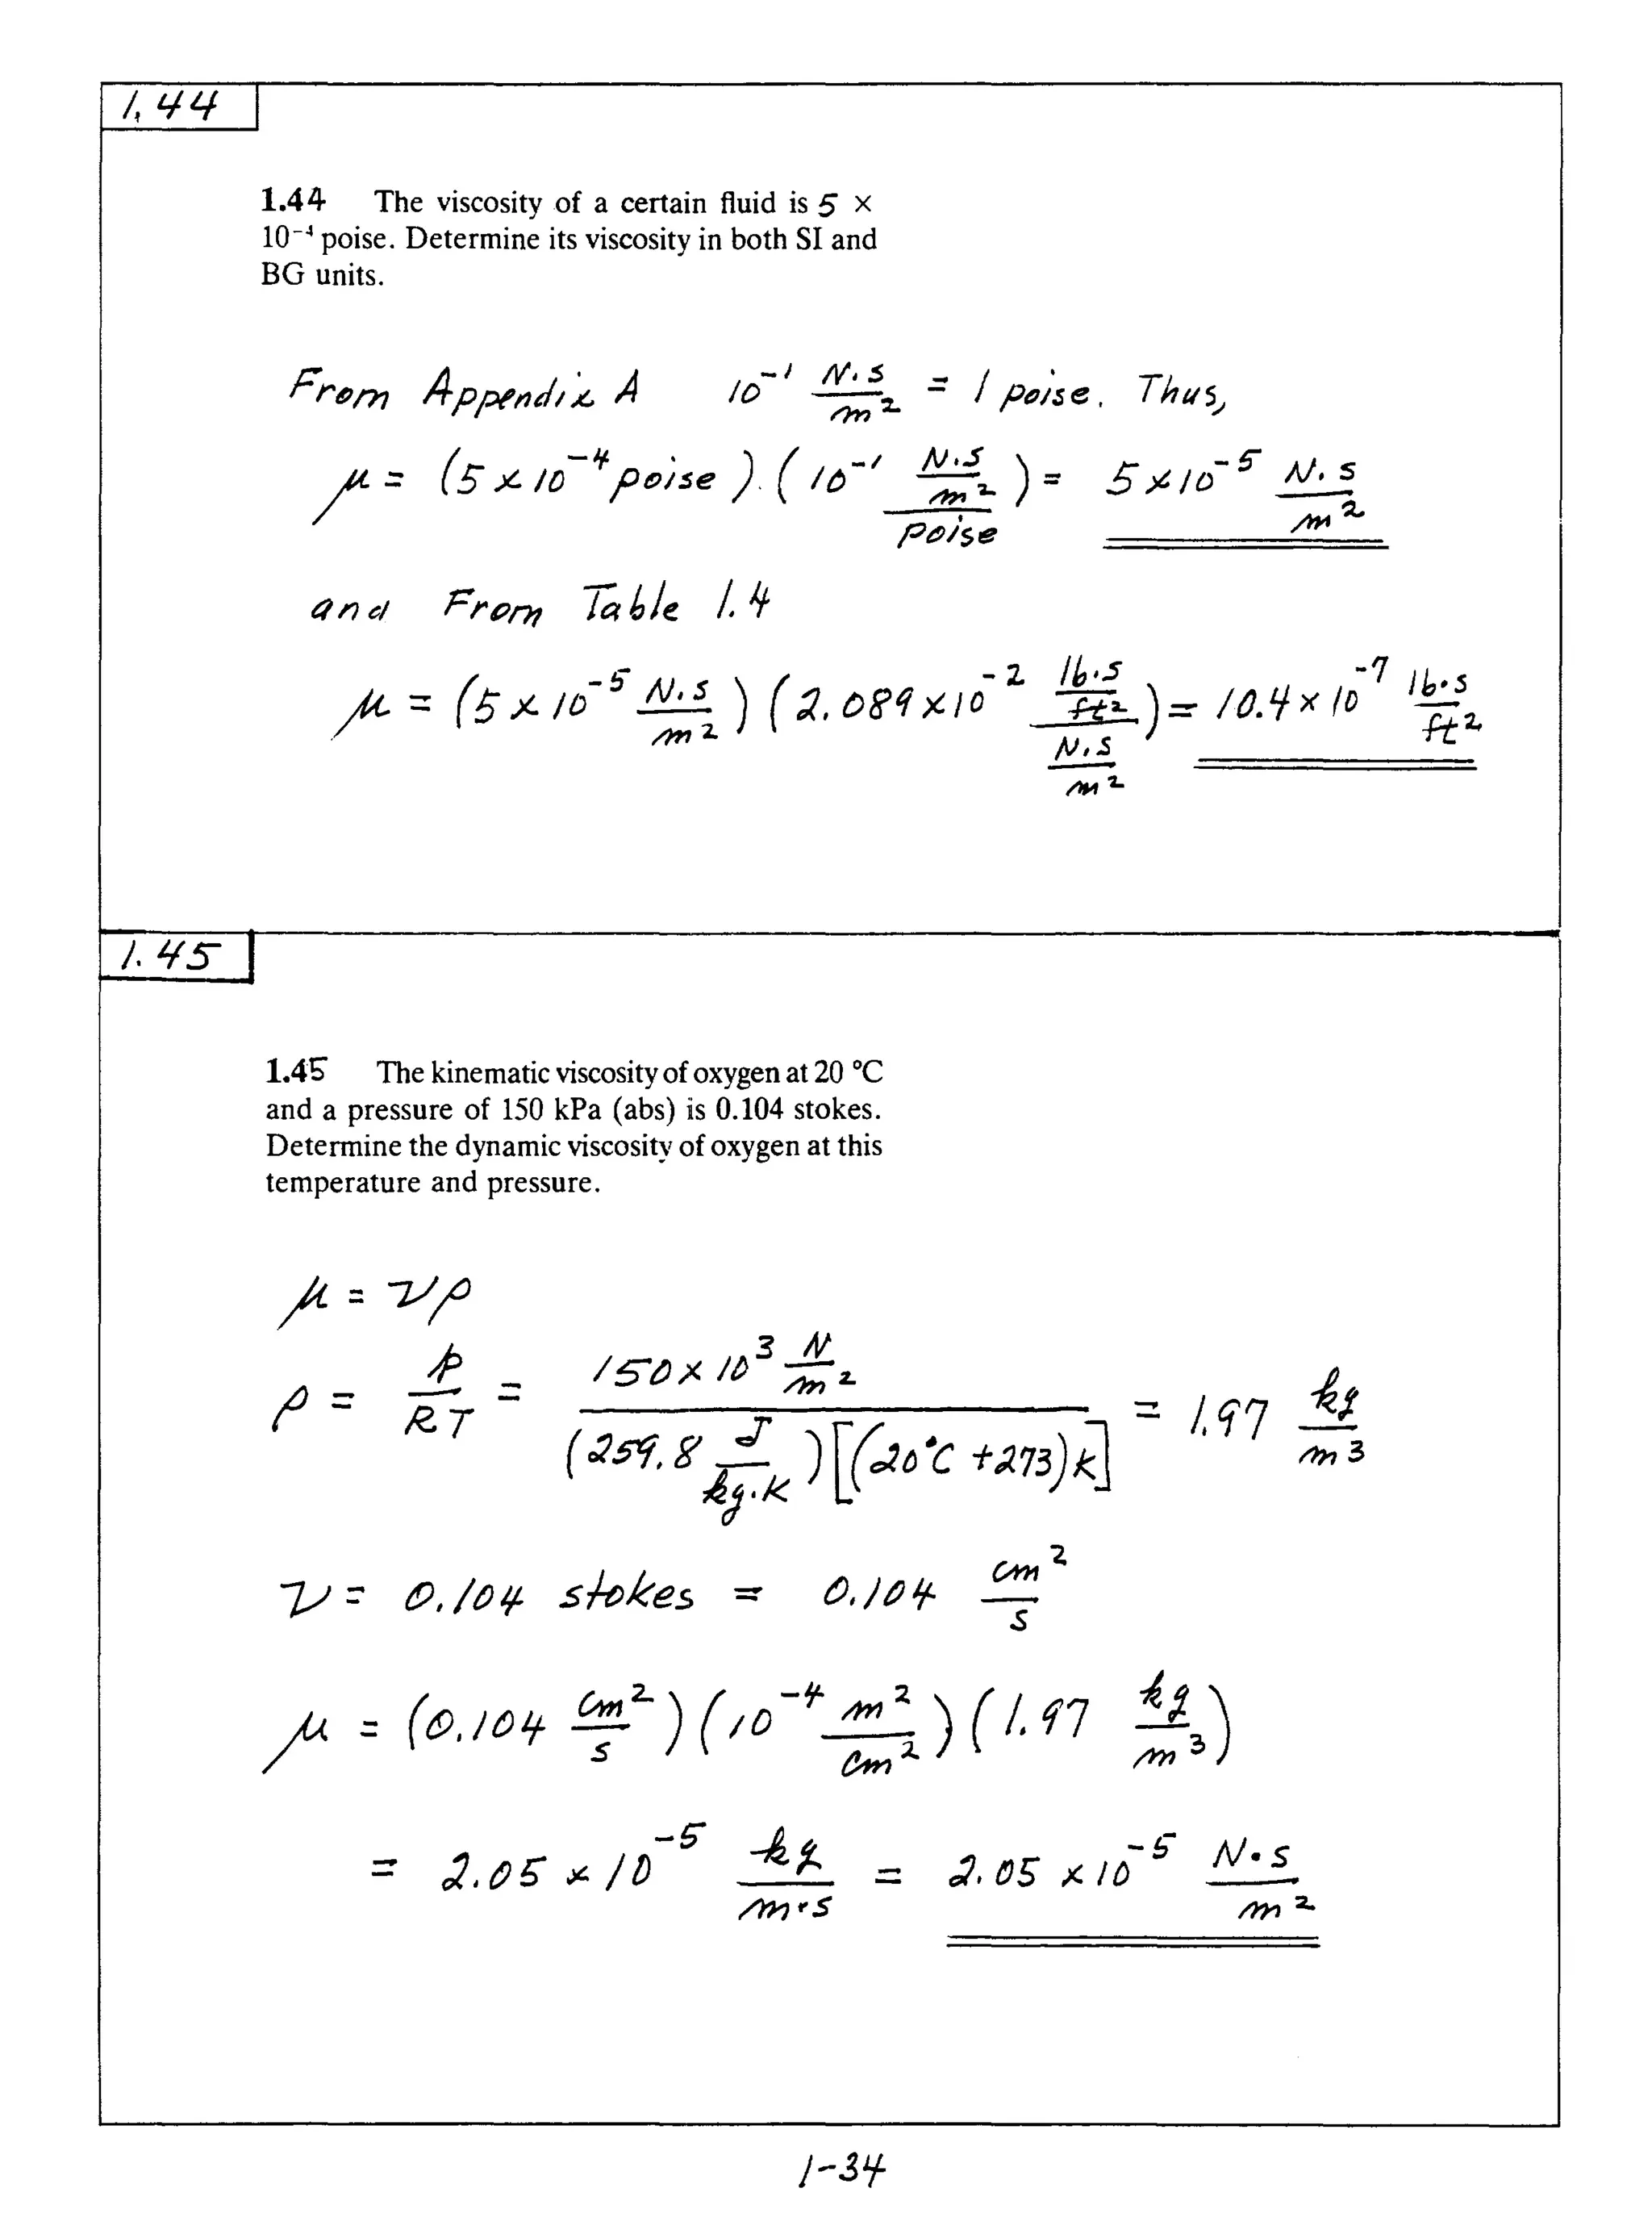 1.44
1.44 The viscosity of a certain fluid is 5 ×
10⁻⁴ poise. Determine its viscosity in both SI and
BG units.
From Appendix A 10⁻¹ N·s/m² = 1 poise. Thus,
μ = (5 × 10⁻⁴ poise).(10⁻¹ (N·s/m²)/poise) = 5 × 10⁻⁵ N·s/m²
and From Table 1.4
μ = (5 × 10⁻⁵ N·s/m²) (2.089 × 10⁻² (lb·s/ft²)/(N·s/m²)) = 10.4 × 10⁻⁷ lb·s/ft²
1.45
1.45 The kinematic viscosity of oxygen at 20 °C
and a pressure of 150 kPa (abs) is 0.104 stokes.
Determine the dynamic viscosity of oxygen at this
temperature and pressure.
μ = νρ
ρ = p/RT = (150 × 10³ N/m²)/((259.8 J/kg·K)[(20°C + 273)K]) = 1.97 kg/m³
ν = 0.104 stokes = 0.104 cm²/s
μ = (0.104 cm²/s)(10⁻⁴ m²/cm²)(1.97 kg/m³)
= 2.05 × 10⁻⁵ kg/m·s = 2.05 × 10⁻⁵ N·s/m²
1-34